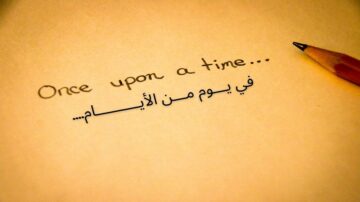 Once upon a time...
في يوم من الأيـــــــــام....